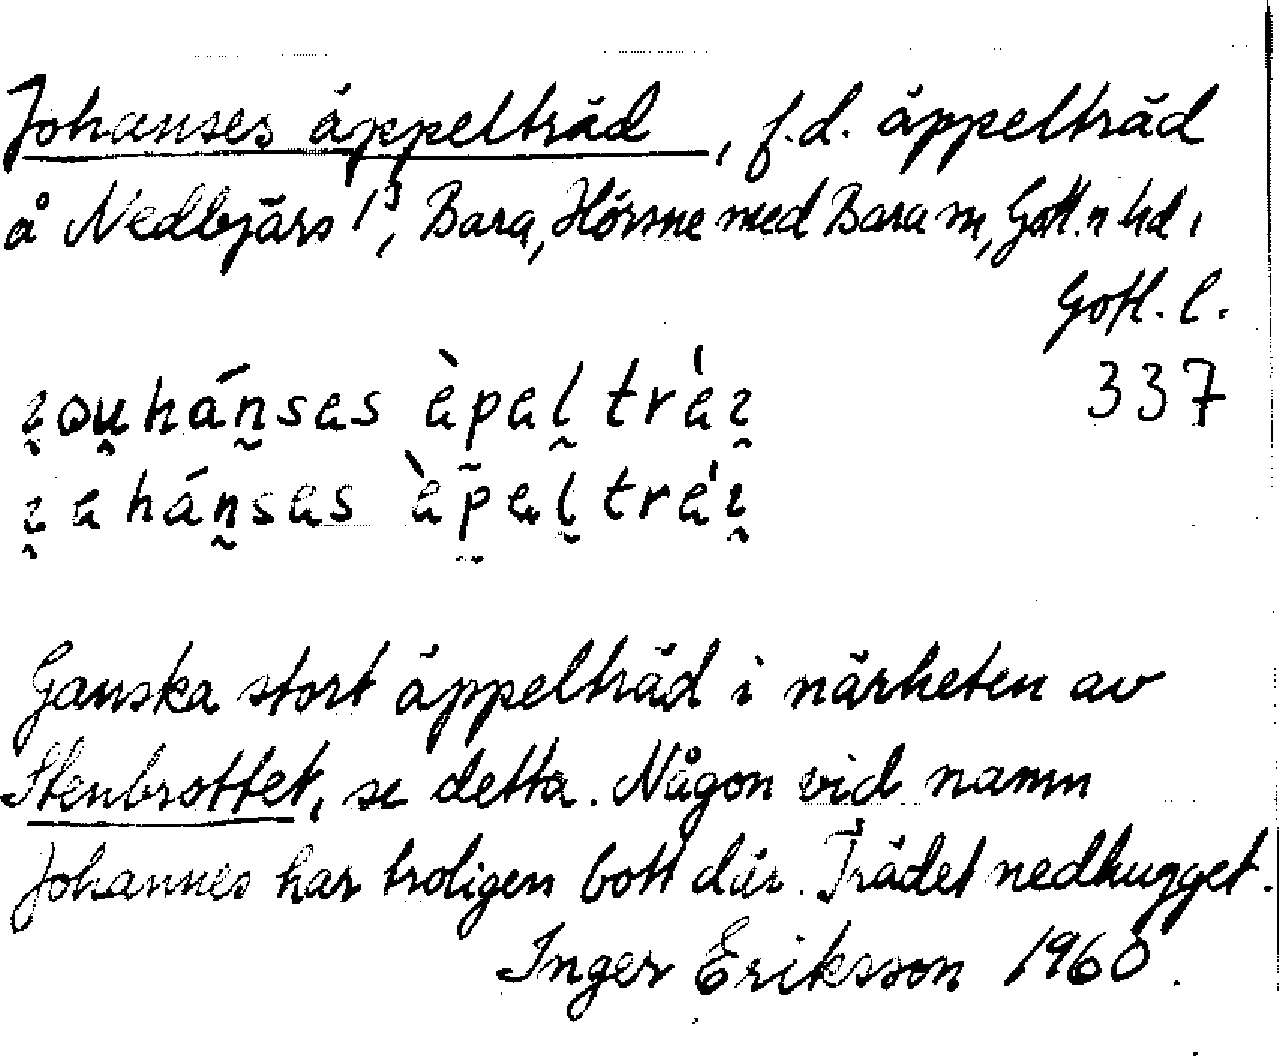 Johanses äppelträd, f.d. äppelträd
å Nedbjärs 1³, Bara, Hörsne med Bara sn, Gotl. n hd,
Gotl. l.
337
ɀou̯hán̰sas èpal̰ trá̀ɀ
ɀahán̰sas èpal̰ tráɀ
Ganska stort äppelträd i närheten av
Stenbrottet, se detta. Någon vid namn
Johannes har troligen bott där. Trädet nedhugget.
Inger Eriksson 1960.